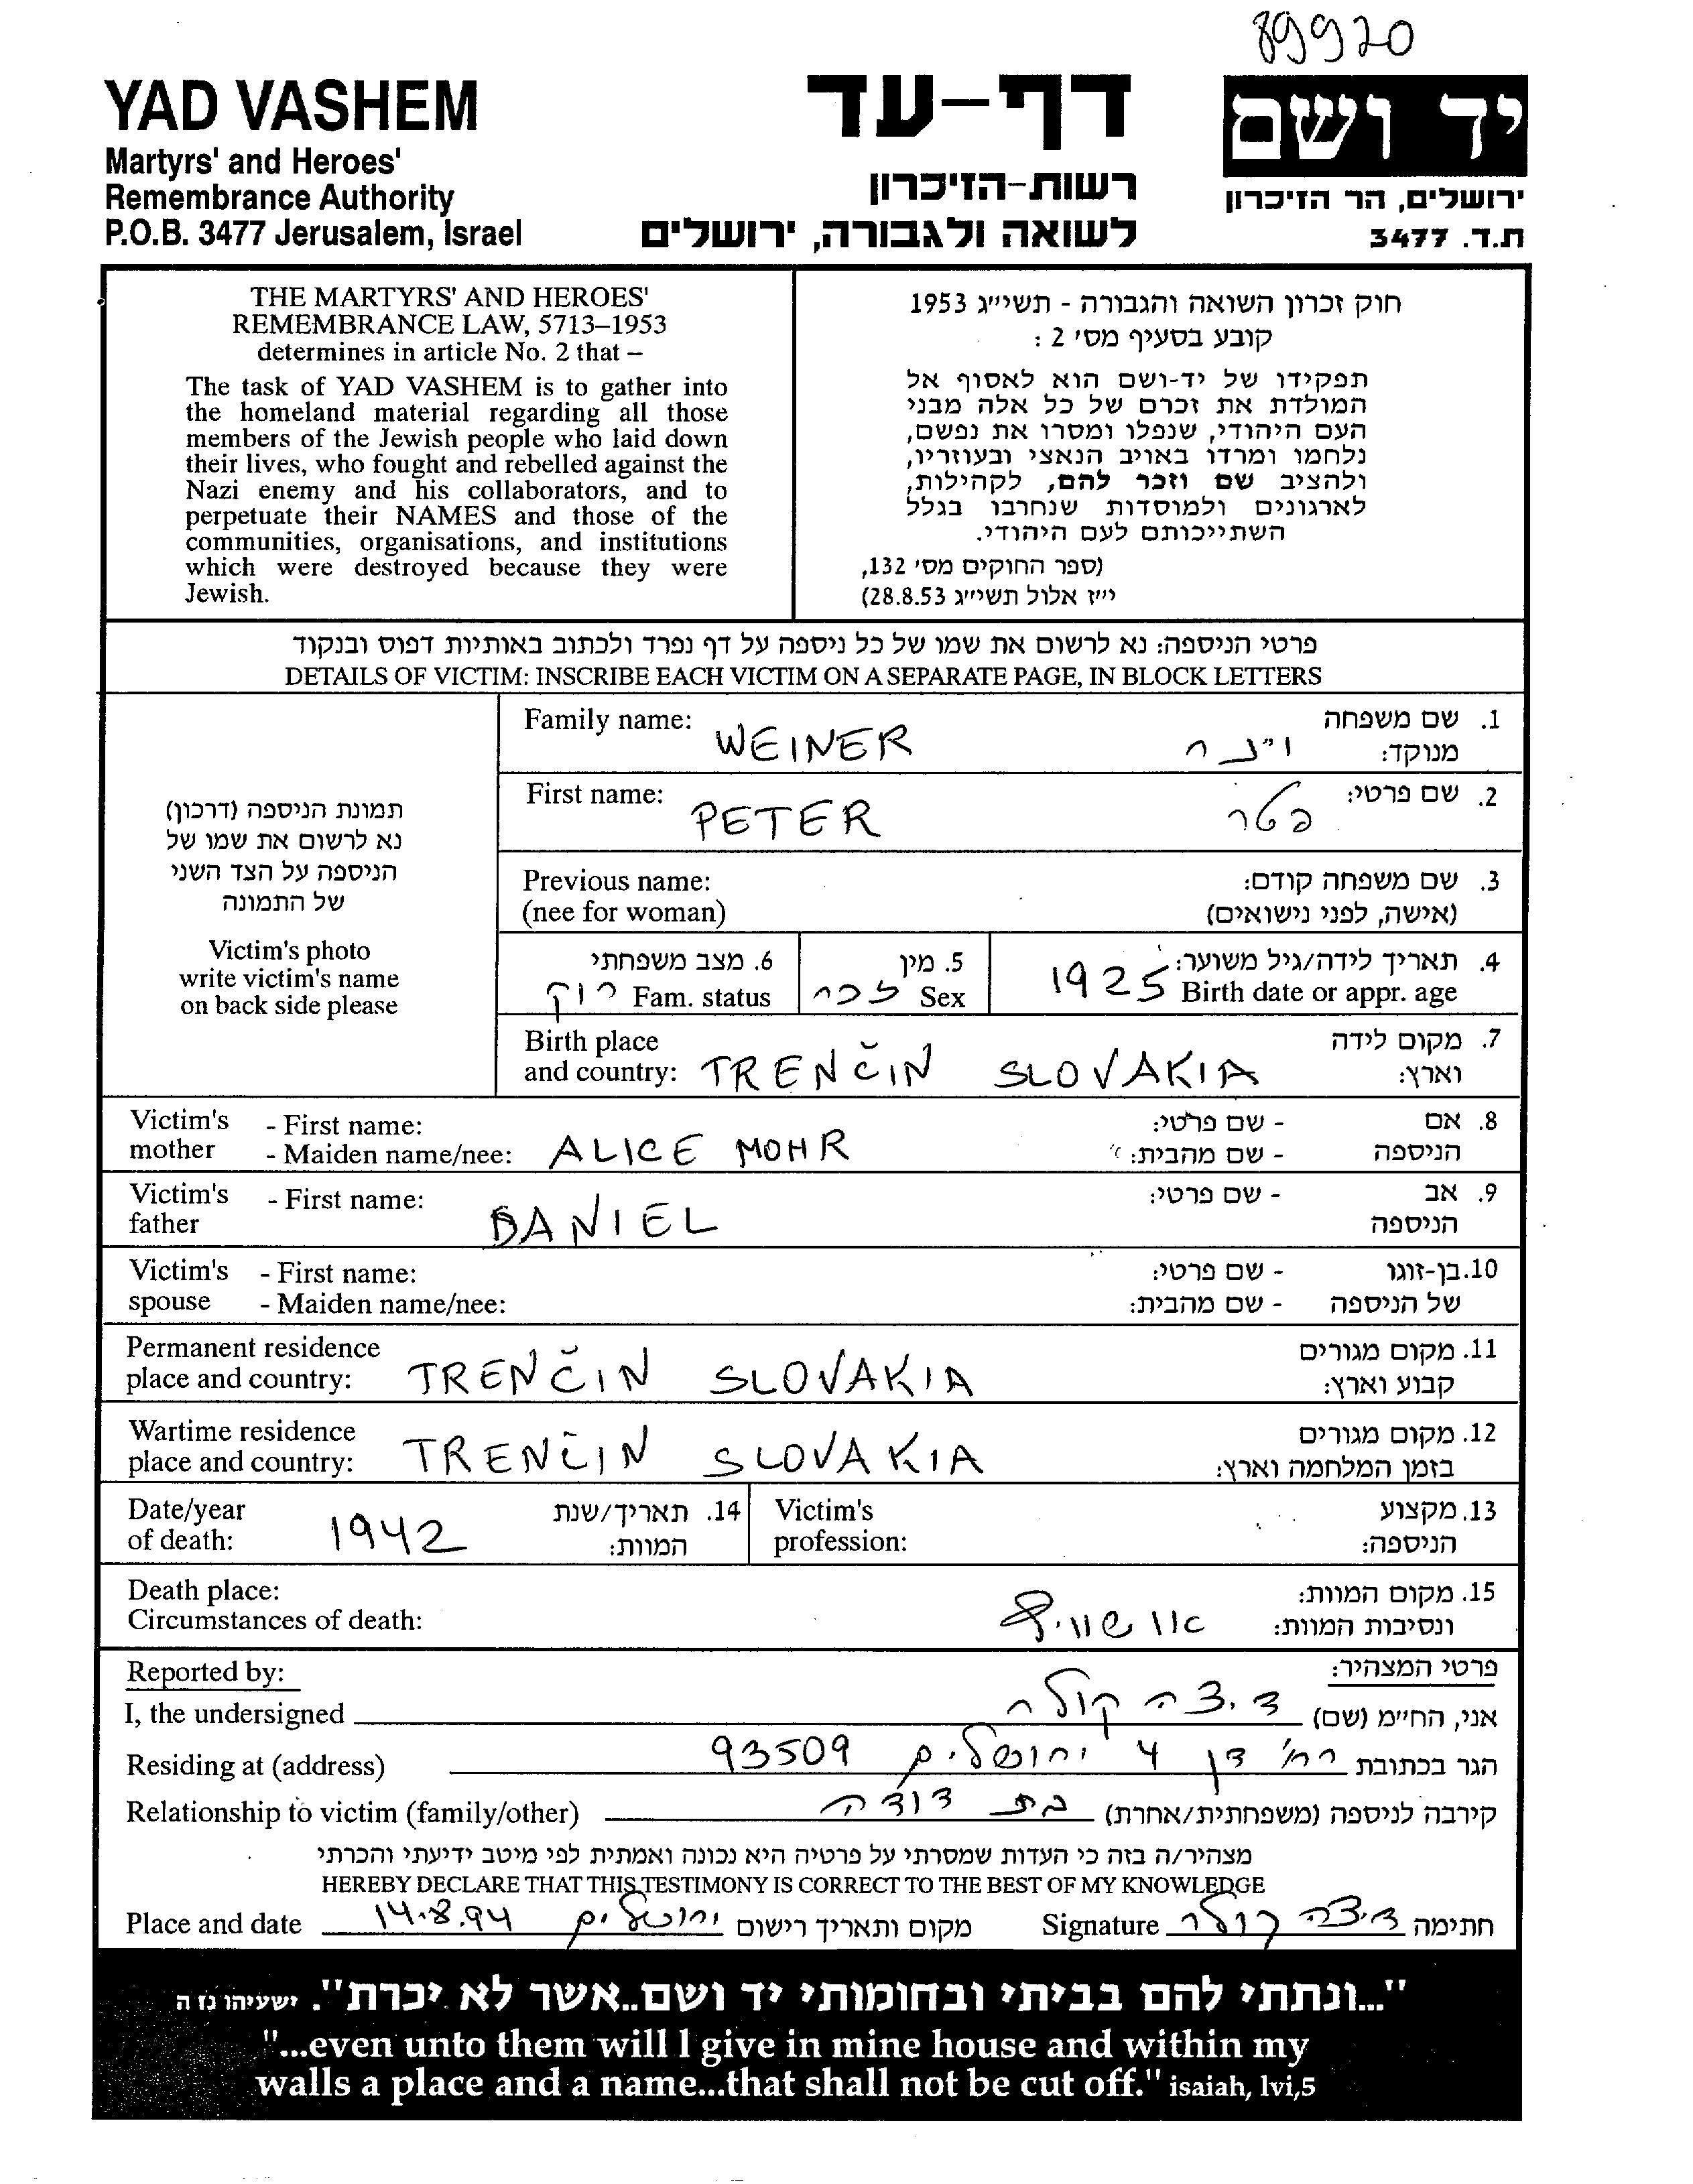 89920
YAD VASHEM
Martyrs' and Heroes'
Remembrance Authority
P.O.B. 3477 Jerusalem, Israel
דף-עד
רשות-הזיכרון
לשואה ולגבורה, ירושלים
יד ושם
ירושלים, הר הזיכרון
ת.ד. 3477
THE MARTYRS' AND HEROES'
REMEMBRANCE LAW, 5713–1953
determines in article No. 2 that –
The task of YAD VASHEM is to gather into
the homeland material regarding all those
members of the Jewish people who laid down
their lives, who fought and rebelled against the
Nazi enemy and his collaborators, and to
perpetuate their NAMES and those of the
communities, organisations, and institutions
which were destroyed because they were
Jewish.
חוק זכרון השואה והגבורה - תשי״ג 1953
קובע בסעיף מס׳ 2 :
תפקידו של יד-ושם הוא לאסוף אל
המולדת את זכרם של כל אלה מבני
העם היהודי, שנפלו ומסרו את נפשם,
נלחמו ומרדו באויב הנאצי ובעוזריו,
ולהציב שם וזכר להם, לקהילות,
לארגונים ולמוסדות שנחרבו בגלל
השתייכותם לעם היהודי.
(ספר החוקים מס׳ 132,
י״ז אלול תשי״ג 28.8.53)
פרטי הניספה: נא לרשום את שמו של כל ניספה על דף נפרד ולכתוב באותיות דפוס ובנקוד
DETAILS OF VICTIM: INSCRIBE EACH VICTIM ON A SEPARATE PAGE, IN BLOCK LETTERS
תמונת הניספה (דרכון)
נא לרשום את שמו של
הניספה על הצד השני
של התמונה
Victim's photo
write victim's name
on back side please
Family name: WEINER וינר 1. שם משפחה
מנוקד:
First name: PETER פטר 2. שם פרטי:
Previous name: 3. שם משפחה קודם:
(nee for woman) (אישה, לפני נישואים)
6. מצב משפחתי 5. מין 4. תאריך לידה/גיל משוער:
רווק Fam. status זכר Sex 1925 Birth date or appr. age
Birth place 7. מקום לידה
and country: TRENČIN SLOVAKIA וארץ:
Victim's - First name: - שם פרטי: 8. אם
mother - Maiden name/nee: ALICE MOHR - שם מהבית: הניספה
Victim's - First name: - שם פרטי: 9. אב
father DANIEL הניספה
Victim's - First name: - שם פרטי: 10. בן-זוגו
spouse - Maiden name/nee: - שם מהבית: של הניספה
Permanent residence 11. מקום מגורים
place and country: TRENČIN SLOVAKIA קבוע וארץ:
Wartime residence 12. מקום מגורים
place and country: TRENČIN SLOVAKIA בזמן המלחמה וארץ:
Date/year 14. תאריך/שנת Victim's 13. מקצוע
of death: 1942 המוות: profession: הניספה:
Death place: 15. מקום המוות:
Circumstances of death: אושוויץ ונסיבות המוות:
Reported by: פרטי המצהיר:
I, the undersigned דיצה קולר אני, החי״מ (שם)
Residing at (address) רח׳ דן 4 ירושלים 93509 הגר בכתובת
Relationship to victim (family/other) בת דודה קירבה לניספה (משפחתית/אחרת)
מצהיר/ה בזה כי העדות שמסרתי על פרטיה היא נכונה ואמתית לפי מיטב ידיעתי והכרתי
HEREBY DECLARE THAT THIS TESTIMONY IS CORRECT TO THE BEST OF MY KNOWLEDGE
Place and date 14.8.94 ירושלים מקום ותאריך רישום Signature דיצה קולר חתימה
"...ונתתי להם בביתי ובחומותי יד ושם..אשר לא יכרת". ישעיהו נו ה
"...even unto them will I give in mine house and within my
walls a place and a name...that shall not be cut off." isaiah, lvi,5